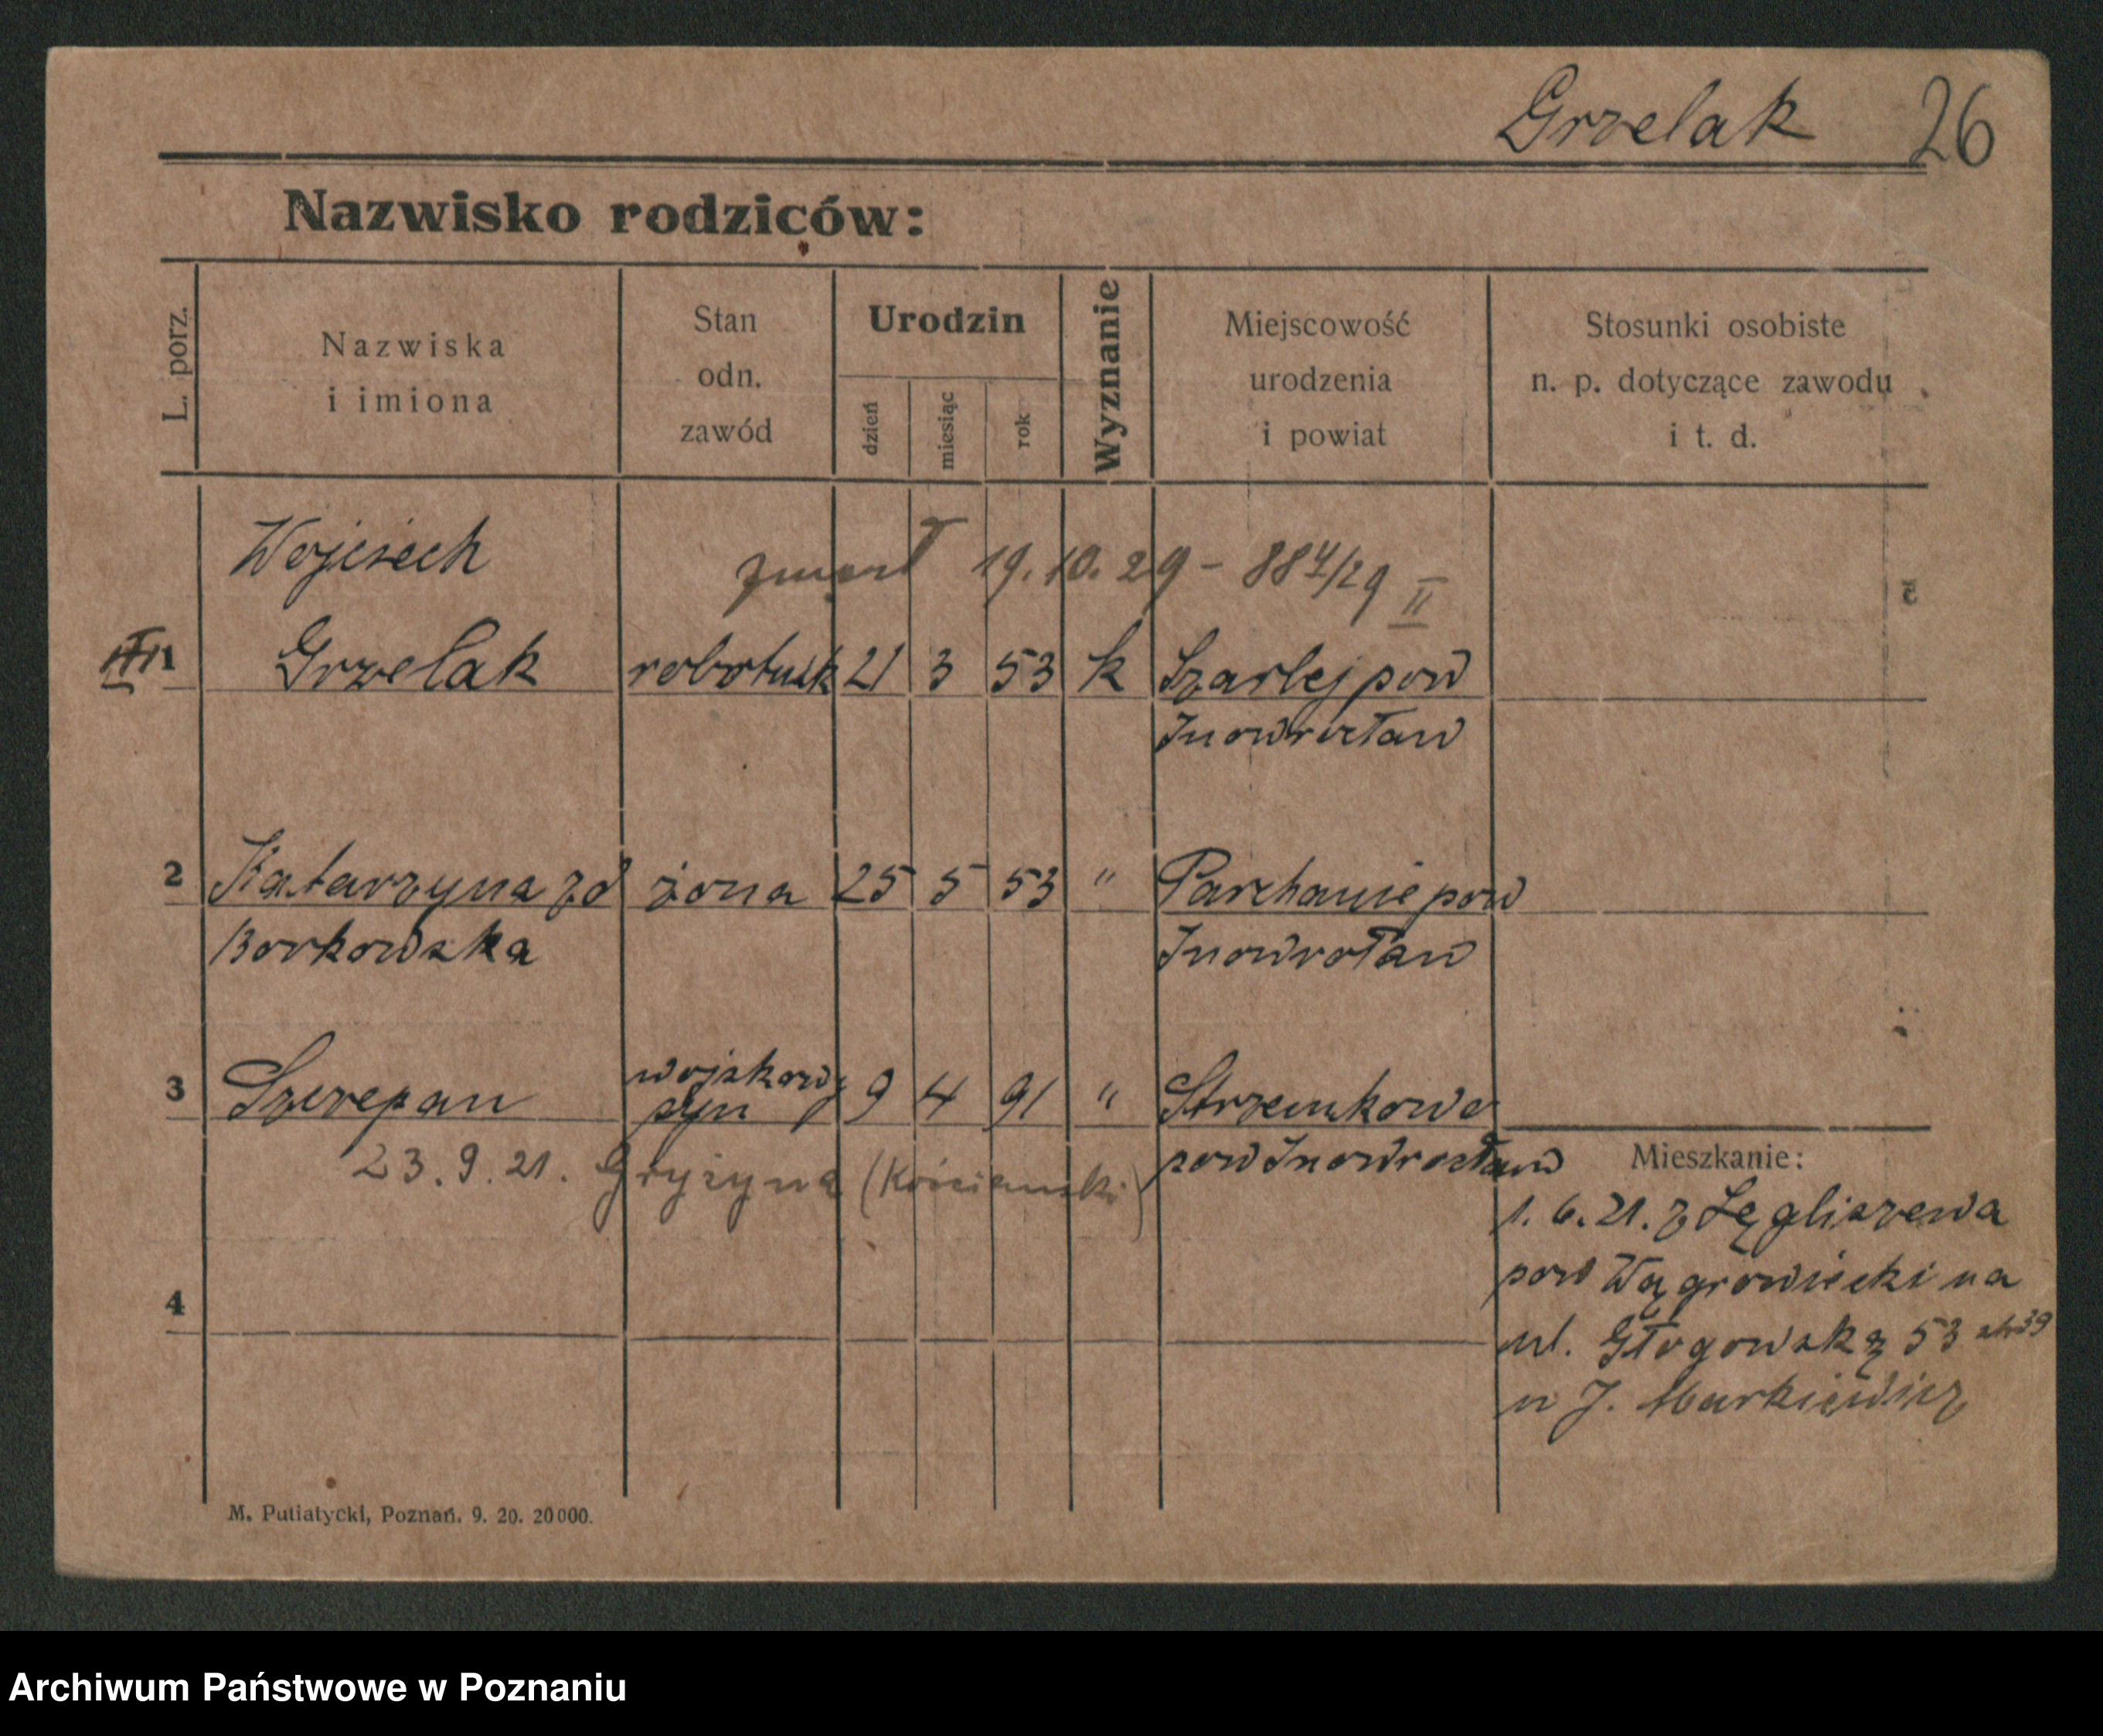 Grzelak 26
Nazwisko rodziców:
L. porz.
Nazwiska
i imiona
Stan
odn.
zawód
Urodzin
dzień
miesiąc
rok
Wyznanie
Miejscowość
urodzenia
i powiat
Stosunki osobiste
n. p. dotyczące zawodu
i t. d.
Wojciech
zmarł 19.10.29 – 884/29 II
1 Grzelak robotnik 21 3 53 k Szarlej pow
Inowrocław
2 Katarzyna zd żona 25 5 53 " Parchanie pow
Borkowska Inowrocław
wojskowy
3 Szczepan syn 9 4 91 " Strzemkowo
pow Inowrocław
23.9.21. Gryżyna (Kościański)
Mieszkanie:
1. 6. 21. z Łęgliszewa
pow Wągrowiecki na
ul. Głogowską 53
u J. Markiewicz
4
M. Putiatycki, Poznań. 9. 20. 20000.
Archiwum Państwowe w Poznaniu